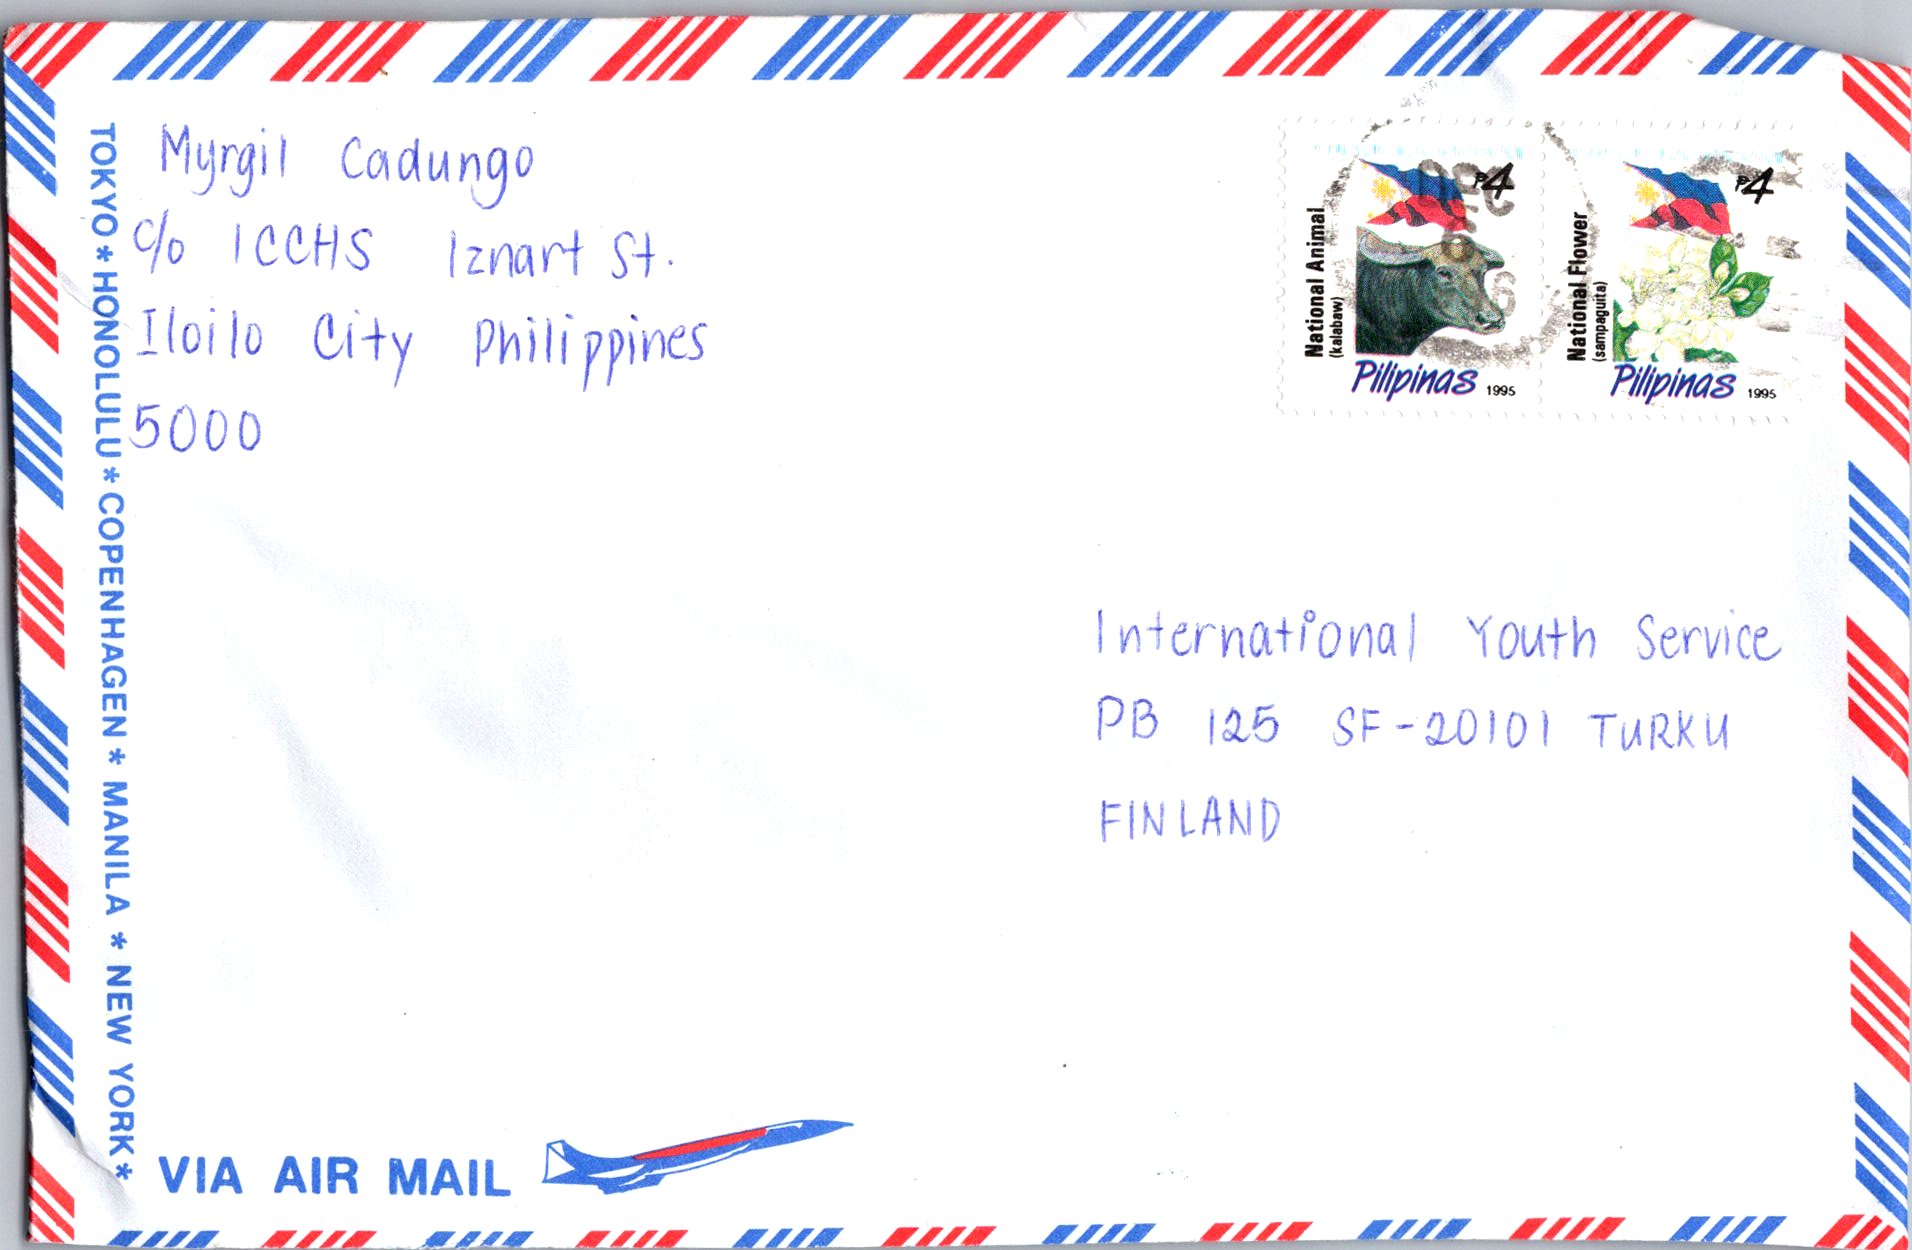 Myrgil Cadungo
c/o ICCHS Iznart St.
Iloilo City Philippines
5000
TOKYO * HONOLULU * COPENHAGEN * MANILA * NEW YORK *
₱4
National Animal
(kalabaw)
Pilipinas 1995
₱4
National Flower
(sampaguita)
Pilipinas 1995
International Youth Service
PB 125 SF-20101 TURKU
FINLAND
VIA AIR MAIL